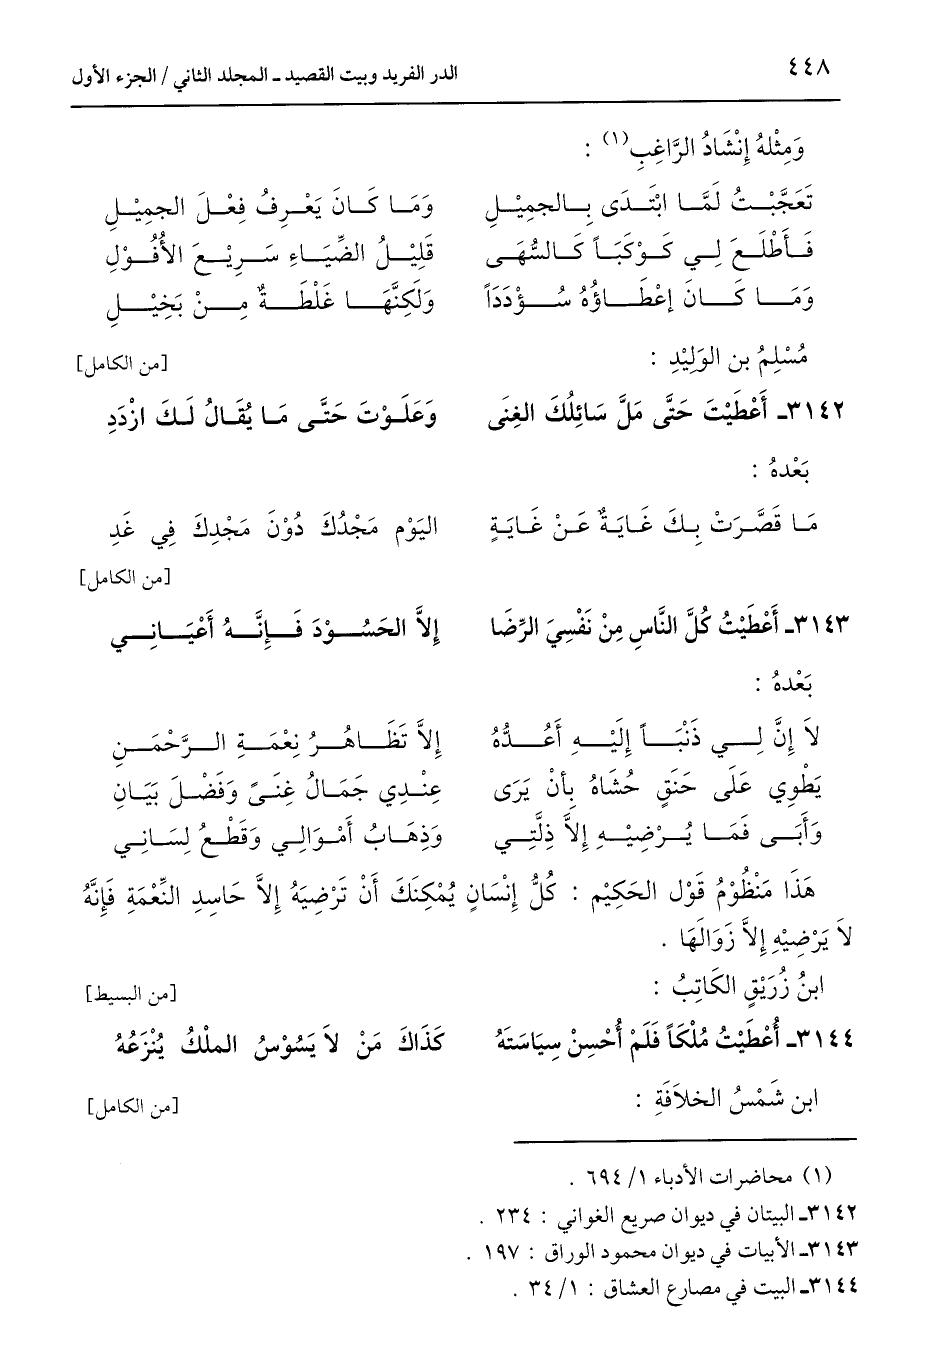 ٤٤٨ الدر الفريد وبيت القصيد ـ المجلد الثاني / الجزء الأول
وَمِثْلهُ إِنْشَادُ الرَّاغِبِ(١) :
تَعَجَّبْتُ لَمَّا ابْتَدَى بِالجمِيْلِ وَمَا كَانَ يَعْرِفُ فِعْلَ الجمِيْلِ
فَأَطْلَعَ لِي كَوْكَبَاً كَالسُّهَى قَلِيْلُ الضِّيَاءِ سَرِيْعَ الأُفُوْلِ
وَمَا كَانَ إعْطَاؤُهُ سُؤْدَدَاً وَلَكِنَّهَا غَلْطَةٌ مِنْ بَخِيْلِ
مُسْلِمُ بن الوَلِيْدِ : [من الكامل]
٣١٤٢ـ أَعْطَيْتَ حَتَّى مَلَّ سَائِلُكَ الغِنَى وَعَلَوْتَ حَتَّى مَا يُقَالُ لَكَ ازْدَدِ
بَعْدهُ :
مَا قَصَّرَتْ بِكَ غَايَةٌ عَنْ غَايَةٍ اليَوْم مَجْدُكَ دُوْنَ مَجْدِكَ فِي غَدِ
[من الكامل]
٣١٤٣ـ أَعْطَيْتُ كُلَّ النَّاسِ مِنْ نَفْسِيَ الرِّضَا إِلاَّ الحَسُوْدَ فَإِنَّهُ أَعْيَانِي
بَعْدهُ :
لاَ إِنَّ لِي ذَنْبَاً إِلَيْهِ أَعُدُّهُ إِلاَّ تَظَاهُرُ نِعْمَةِ الرَّحْمَنِ
يَطْوِي عَلَى حَنَقٍ حُشَاهُ بِأَنْ يَرَى عِنْدِي جَمَالُ غِنَىً وَفَضْلَ بَيَانِ
وَأَبَى فَمَا يُرْضِيْهِ إِلاَّ ذِلَّتِي وَذِهَابُ أَمْوَالِي وَقَطْعُ لِسَانِي
هَذَا مَنْظُوْمُ قَوْل الحَكِيْم : كُلُّ إِنْسَانٍ يُمْكِنَكَ أَنْ تَرْضِيَهُ إِلاَّ حَاسِدِ النِّعْمَةِ فَإِنَّهُ
لاَ يَرْضِيْهِ إِلاَّ زَوَالَهَا .
ابنُ زُرَيْقٍ الكَاتِبُ : [من البسيط]
٣١٤٤ـ أُعْطَيْتُ مُلْكَاً فَلَمْ أُحْسِنْ سِيَاسَتَهُ كَذَاكَ مَنْ لاَ يَسُوْسُ الملْكُ يُنْزَعُهُ
ابن شَمْسُ الخلاَفَةِ : [من الكامل]
(١) محاضرات الأدباء ١/ ٦٩٤ .
٣١٤٢ـ البيتان في ديوان صريع الغواني : ٢٣٤ .
٣١٤٣ـ الأبيات في ديوان محمود الوراق : ١٩٧ .
٣١٤٤ـ البيت في مصارع العشاق : ١/ ٣٤ .